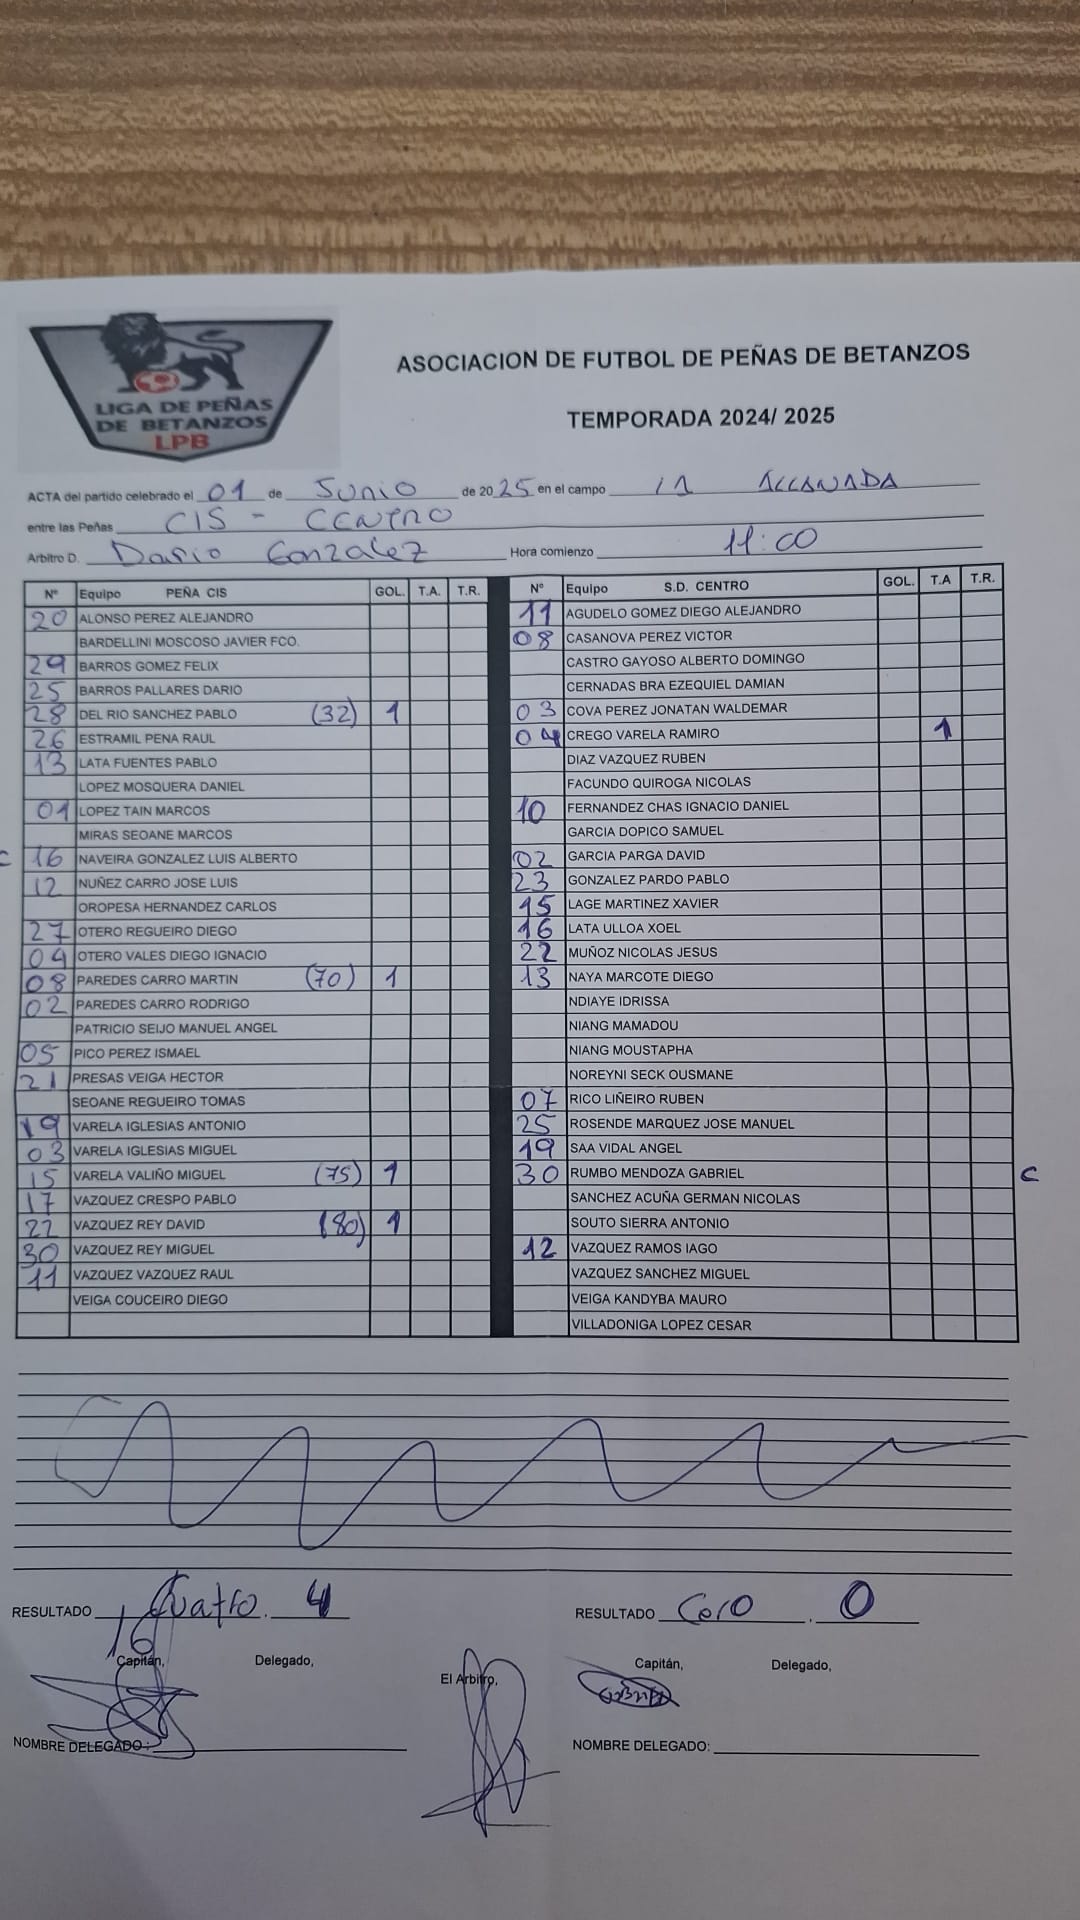 LIGA DE PEÑAS
DE BETANZOS
LPB
ASOCIACION DE FUTBOL DE PEÑAS DE BETANZOS
TEMPORADA 2024/ 2025
ACTA del partido celebrado el 01 de Junio de 2025 en el campo
entre las Peñas CIS - CENTRO
Arbitro D. Dario Gonzalez Hora comienzo 11:00
Nº Equipo PEÑA CIS GOL. T.A. T.R. Nº Equipo S.D. CENTRO GOL. T.A T.R.
20 ALONSO PEREZ ALEJANDRO 11 AGUDELO GOMEZ DIEGO ALEJANDRO
BARDELLINI MOSCOSO JAVIER FCO. 08 CASANOVA PEREZ VICTOR
29 BARROS GOMEZ FELIX CASTRO GAYOSO ALBERTO DOMINGO
25 BARROS PALLARES DARIO CERNADAS BRA EZEQUIEL DAMIAN
28 DEL RIO SANCHEZ PABLO (32) 1 03 COVA PEREZ JONATAN WALDEMAR
26 ESTRAMIL PENA RAUL 04 CREGO VARELA RAMIRO 1
13 LATA FUENTES PABLO DIAZ VAZQUEZ RUBEN
LOPEZ MOSQUERA DANIEL FACUNDO QUIROGA NICOLAS
01 LOPEZ TAIN MARCOS 10 FERNANDEZ CHAS IGNACIO DANIEL
MIRAS SEOANE MARCOS GARCIA DOPICO SAMUEL
C 16 NAVEIRA GONZALEZ LUIS ALBERTO 02 GARCIA PARGA DAVID
12 NUÑEZ CARRO JOSE LUIS 23 GONZALEZ PARDO PABLO
OROPESA HERNANDEZ CARLOS 15 LAGE MARTINEZ XAVIER
27 OTERO REGUEIRO DIEGO 16 LATA ULLOA XOEL
04 OTERO VALES DIEGO IGNACIO 22 MUÑOZ NICOLAS JESUS
08 PAREDES CARRO MARTIN (70) 1 13 NAYA MARCOTE DIEGO
02 PAREDES CARRO RODRIGO NDIAYE IDRISSA
PATRICIO SEIJO MANUEL ANGEL NIANG MAMADOU
05 PICO PEREZ ISMAEL NIANG MOUSTAPHA
21 PRESAS VEIGA HECTOR NOREYNI SECK OUSMANE
SEOANE REGUEIRO TOMAS 07 RICO LIÑEIRO RUBEN
19 VARELA IGLESIAS ANTONIO 25 ROSENDE MARQUEZ JOSE MANUEL
03 VARELA IGLESIAS MIGUEL 19 SAA VIDAL ANGEL
15 VARELA VALIÑO MIGUEL (75) 1 30 RUMBO MENDOZA GABRIEL C
17 VAZQUEZ CRESPO PABLO SANCHEZ ACUÑA GERMAN NICOLAS
22 VAZQUEZ REY DAVID (80) 1 SOUTO SIERRA ANTONIO
30 VAZQUEZ REY MIGUEL 12 VAZQUEZ RAMOS IAGO
11 VAZQUEZ VAZQUEZ RAUL VAZQUEZ SANCHEZ MIGUEL
VEIGA COUCEIRO DIEGO VEIGA KANDYBA MAURO
VILLADONIGA LOPEZ CESAR
RESULTADO Cuatro. 4 RESULTADO Cero . 0
16
Capitán, Delegado, El Arbitro, Capitán, Delegado,
NOMBRE DELEGADO : NOMBRE DELEGADO: